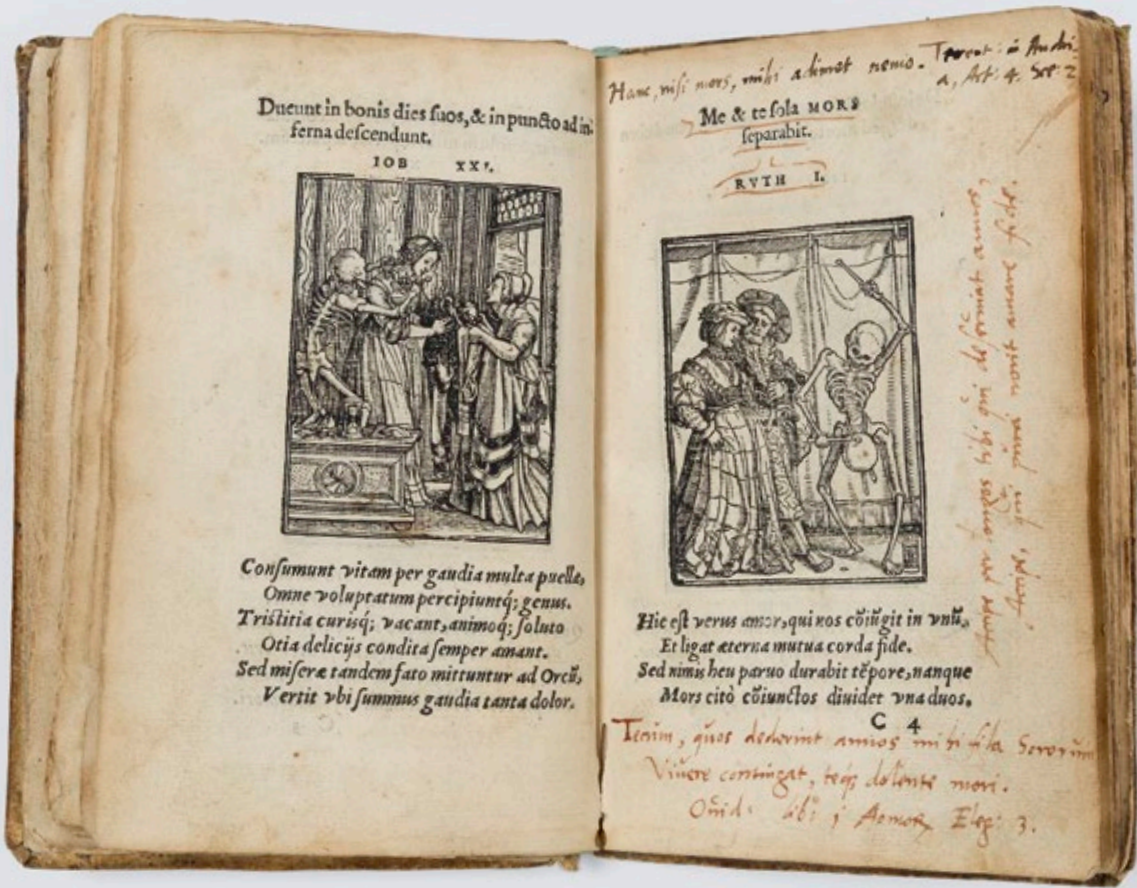 Ducunt in bonis dies suos, & in puncto ad in-
ferna descendunt.
IOB XXI.
Consumunt vitam per gaudia multa puellæ,
Omne voluptatum percipiuntq́; genus.
Tristitia curisq́; vacant, animoq́; soluto
Otia delicijs condita semper amant.
Sed miseræ tandem fato mittuntur ad Orcū,
Vertit vbi summus gaudia tanta dolor.
Hanc, nisi mors, mihi adimet nemo. Terent: in Andri
a, Act. 4. Sce: 2
Me & te sola MORS
separabit.
RVTH I.
Hic est verus amor, qui nos cōiūgit in vnū,
Et ligat æterna mutua corda fide.
Sed nimis heu paruo durabit tēpore, nanque
Mors citò cōiunctos diuidet vna duos.
C 4
Tecum, quos dederint annos mihi fila Sororum
Viuere contingat, teq́; dolente mori.
Ouid. lib: j Amor Eleg: 3.